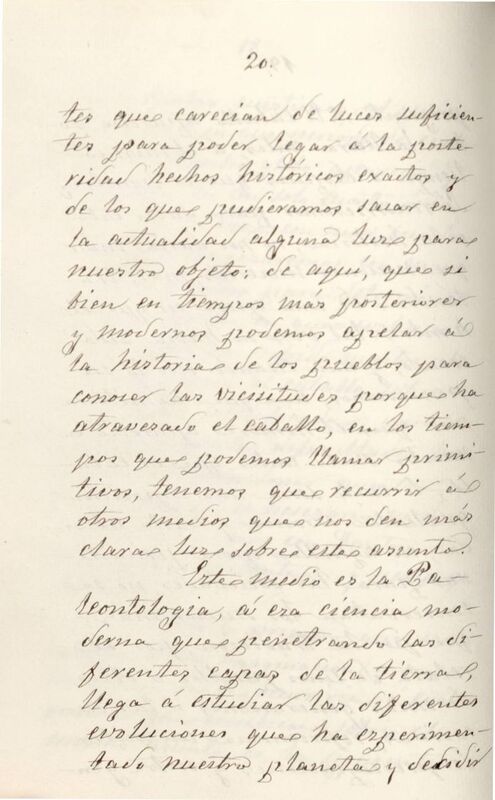 20.
tes que carecian de luces suficien-
tes para poder legar á la poste-
ridad hechos históricos exactos y
de los que pudieramos sacar en
la actualidad alguna luz para
nuestro objeto; de aquí, que si
bien en tiempos más posteriores
y modernos podemos apelar á
la historia de los pueblos para
conocer las vicisitudes porque ha
atravesado el caballo, en los tiem-
pos que podemos llamar primi-
tivos, tenemos que recurrir á
otros medios que nos den más
clara luz sobre este asunto.
Este medio es la Pa-
leontologia, á esa ciencia mo-
derna que penetrando las di-
ferentes capas de la tierra,
llega á estudiar las diferentes
evoluciones que ha experimen-
tado nuestro planeta y decidir